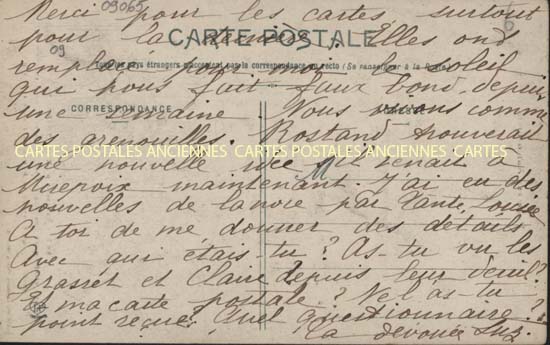 09065
Merci pour les cartes, surtout
pour la dernière. Elles ont
CARTE POSTALE
09
remplacé pour moi le soleil
Tous les pays étrangers n'acceptent pas la correspondance au recto (Se renseigner à la Poste)
qui nous fait faux bond depuis
une semaine. Nous vivons comme
CORRESPONDANCE
des grenouilles. Rostand trouverait
CARTES POSTALES ANCIENNES CARTES POSTALES ANCIENNES CARTES
une nouvelle idée s'il venait à
Mirepoix maintenant. J'ai eu des
nouvelles de la noce par Tante Louise
A toi de me donner des détails
Avec qui étais-tu? As-tu vu les
Grasset et Claire depuis leur deuil?
Et ma carte postale? Ne l'as-tu
point reçue? Quel questionnaire?
Ta dévouée Suz.